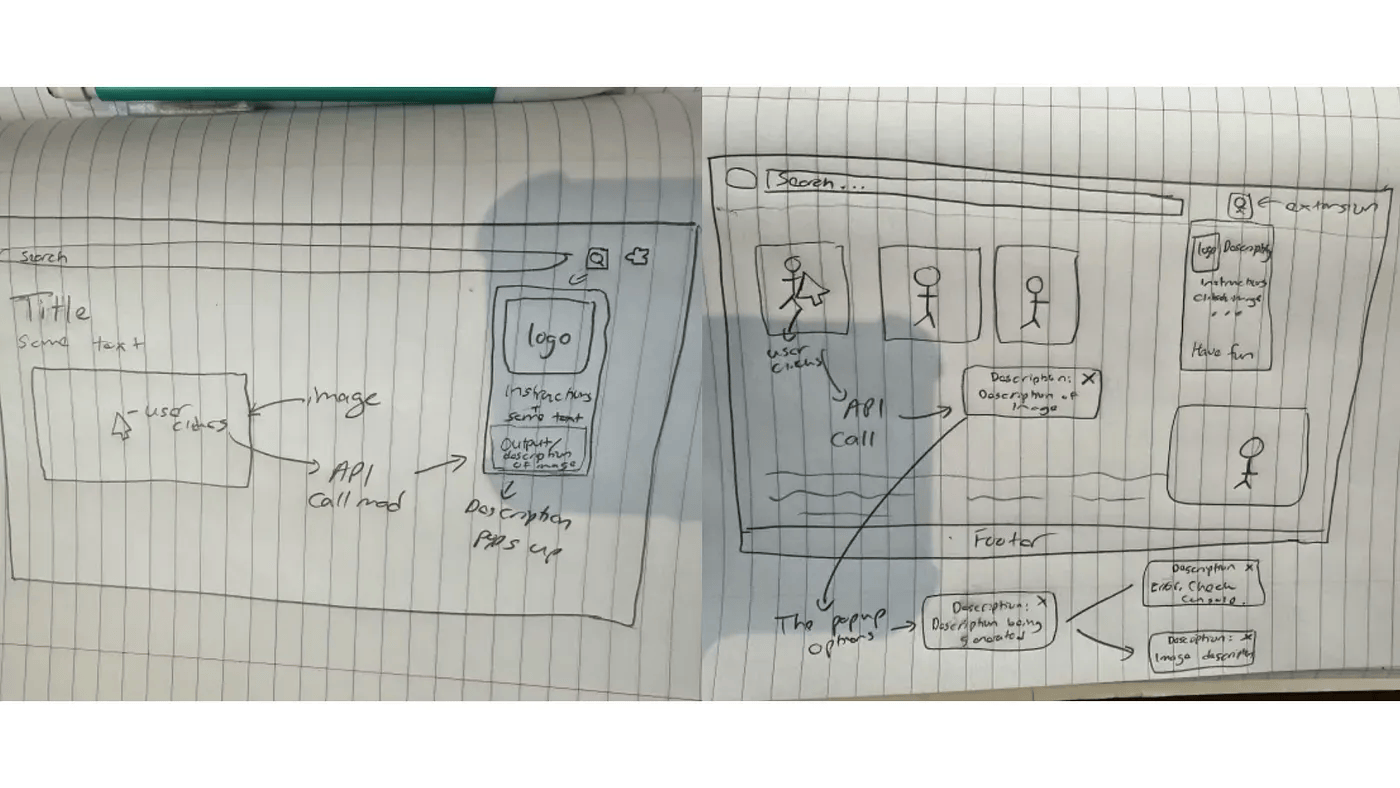 Search
Title
Some text
user
clicks
image
API
Call mad
logo
Instructions
+
some text
Output/
description
of image
Description
Pops up
Search...
extension
logo
Instructions
Click image
...
Have fun
user
clicks
API
Call
Description: X
Description of
Image
Footer
The popup
options
Description: X
Description being
generated
Description X
Error, Check
Console.
Description: X
Image descriptn